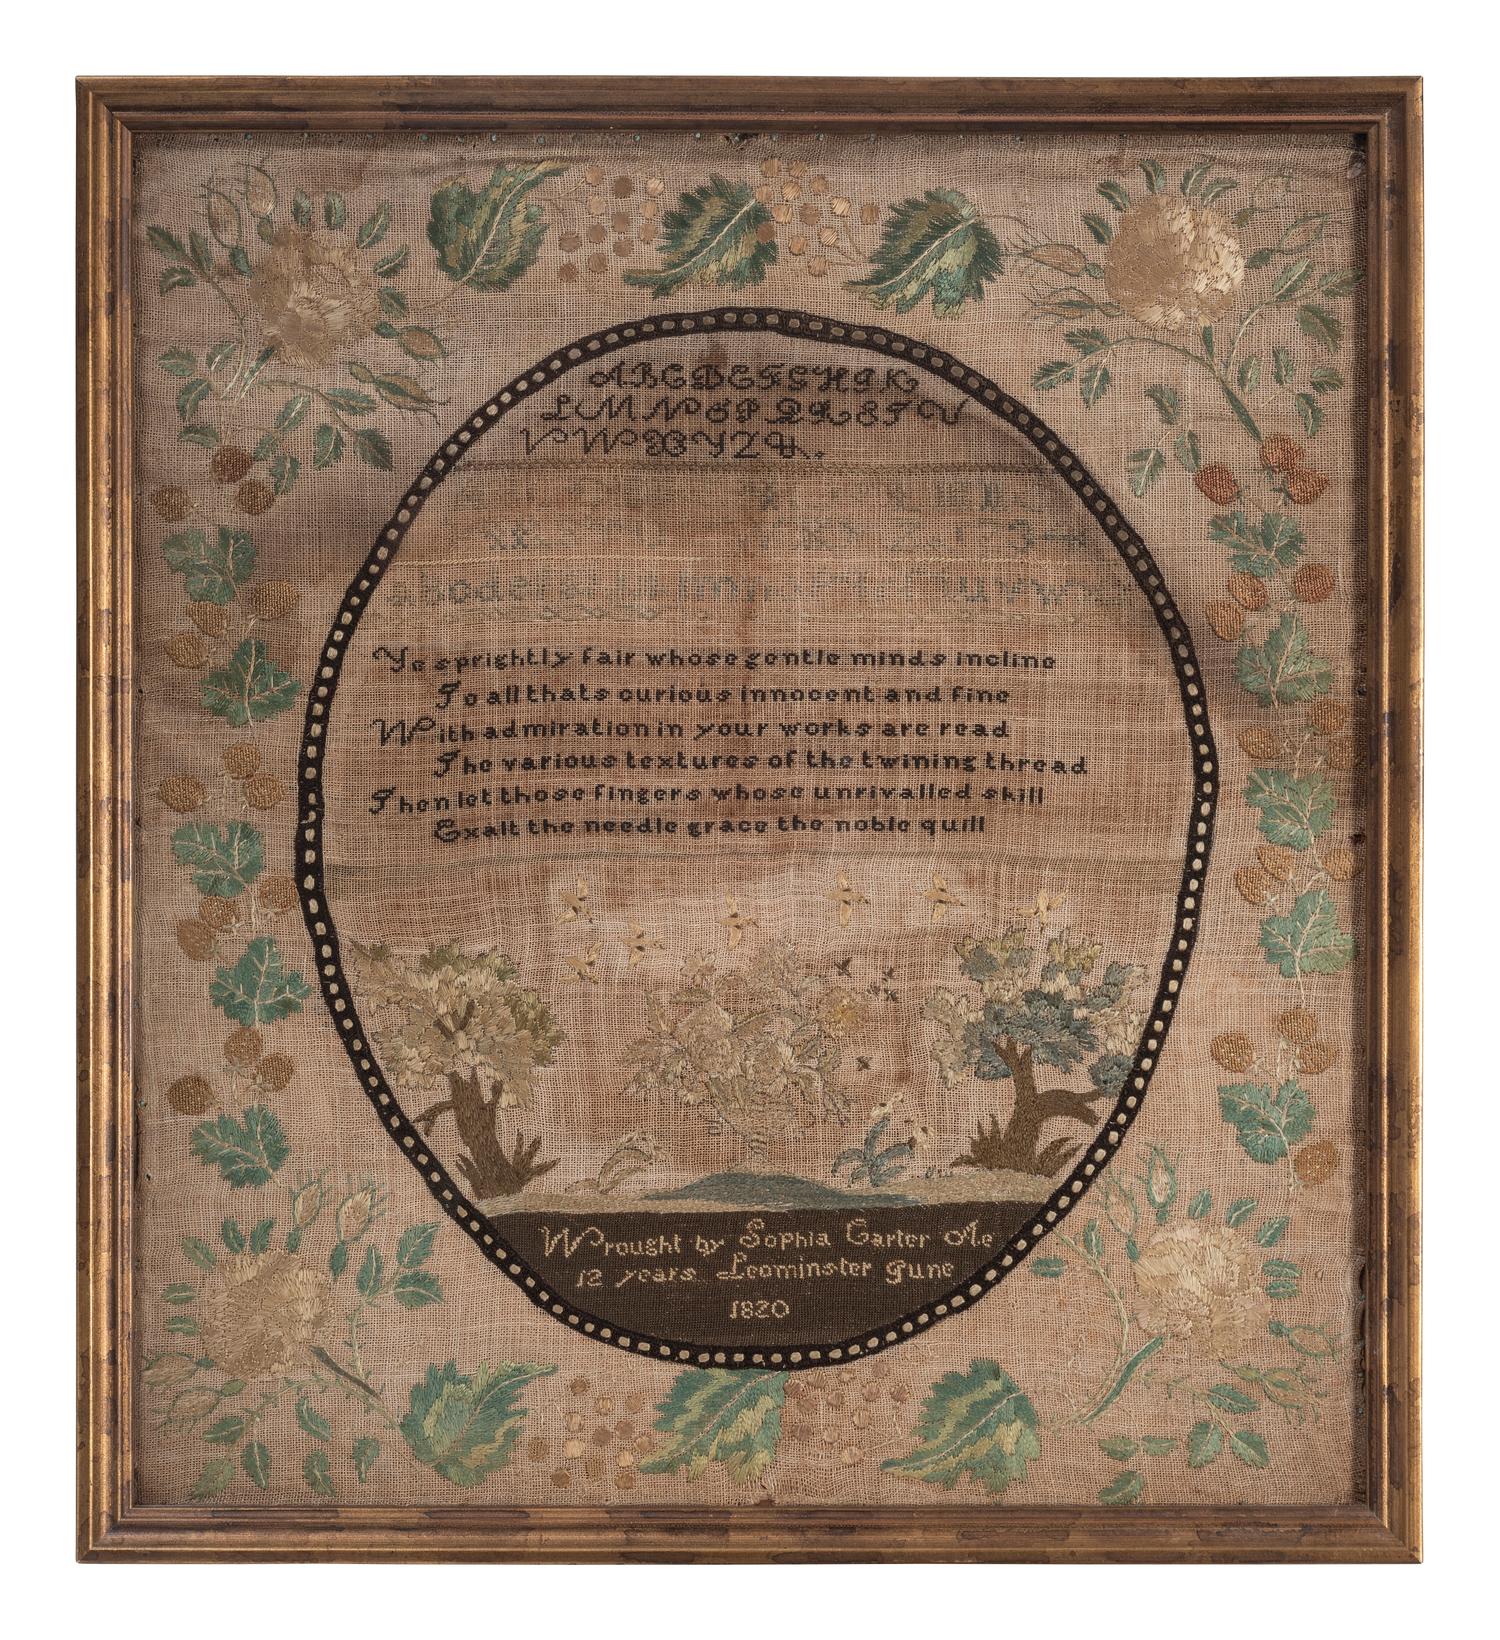 ABCDEFGHIK
LMNOPQRSTU
VWXYZ&.
Ye sprightly fair whose gentle minds incline
To all thats curious innocent and fine
With admiration in your works are read
The various textures of the twining thread
Then let those fingers whose unrivalled skill
Exalt the needle grace the noble quill
Wrought by Sophia Carter Æ
12 years Leominster June
1820